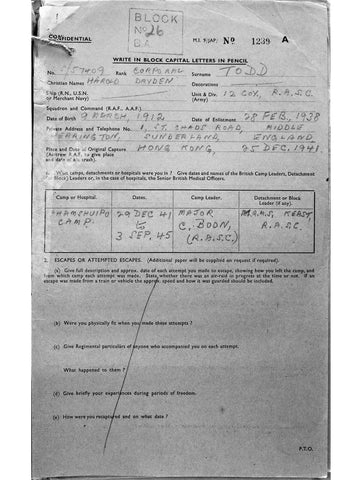 BLOCK
No 26
CONFIDENTIAL
M.I. 9/JAP/ No 1239 A
WRITE IN BLOCK CAPITAL LETTERS IN PENCIL
No. Rank CORPORAL Surname TODD
Christian Names HAROLD Decorations
Ship (R.N., U.S.N. or Merchant Navy) Unit & Div. (Army) 12 COY., R.A.S.C.
Squadron and Command (R.A.F., A.A.F.)
Date of Birth 9 MARCH, 1912 Date of Enlistment 28 FEB, 1938
Private Address and Telephone No. 1, ST. CHADS ROAD, MIDDLE
HERRINGTON, SUNDERLAND, ENGLAND
Place and Date of Original Capture HONG KONG, 25 DEC. 1941
(Aircrew R.A.F. to give place
and date of air crash).
What camps, detachments or hospitals were you in? Give dates and names of the British Camp Leaders, Detachment
(or Block) Leaders or, in case of the hospitals, the Senior British Medical Officers.
Camp or Hospital. Dates. Camp Leader. Detachment or Block Leader (if any).
SHAMSHUIPO 29 DEC 41 MAJOR KERSY,
CAMP. to C. BOON, R.A.S.C.
3 SEP. 45 (R.A.S.C.)
2. ESCAPES OR ATTEMPTED ESCAPES. (Additional paper will be supplied on request if required).
(a) Give full description and approx. date of each attempt you made to escape, showing how you left the camp, and
from which camp each attempt was made. State whether there was an air-raid in progress at the time or not. If an
escape was made from a train or vehicle the approx. speed and how it was guarded should be included.
(b) Were you physically fit when you made these attempts ?
(c) Give Regimental particulars of anyone who accompanied you on each attempt.
What happened to them ?
(d) Give briefly your experiences during periods of freedom.
(e) How were you recaptured and on what date ?
P.T.O.